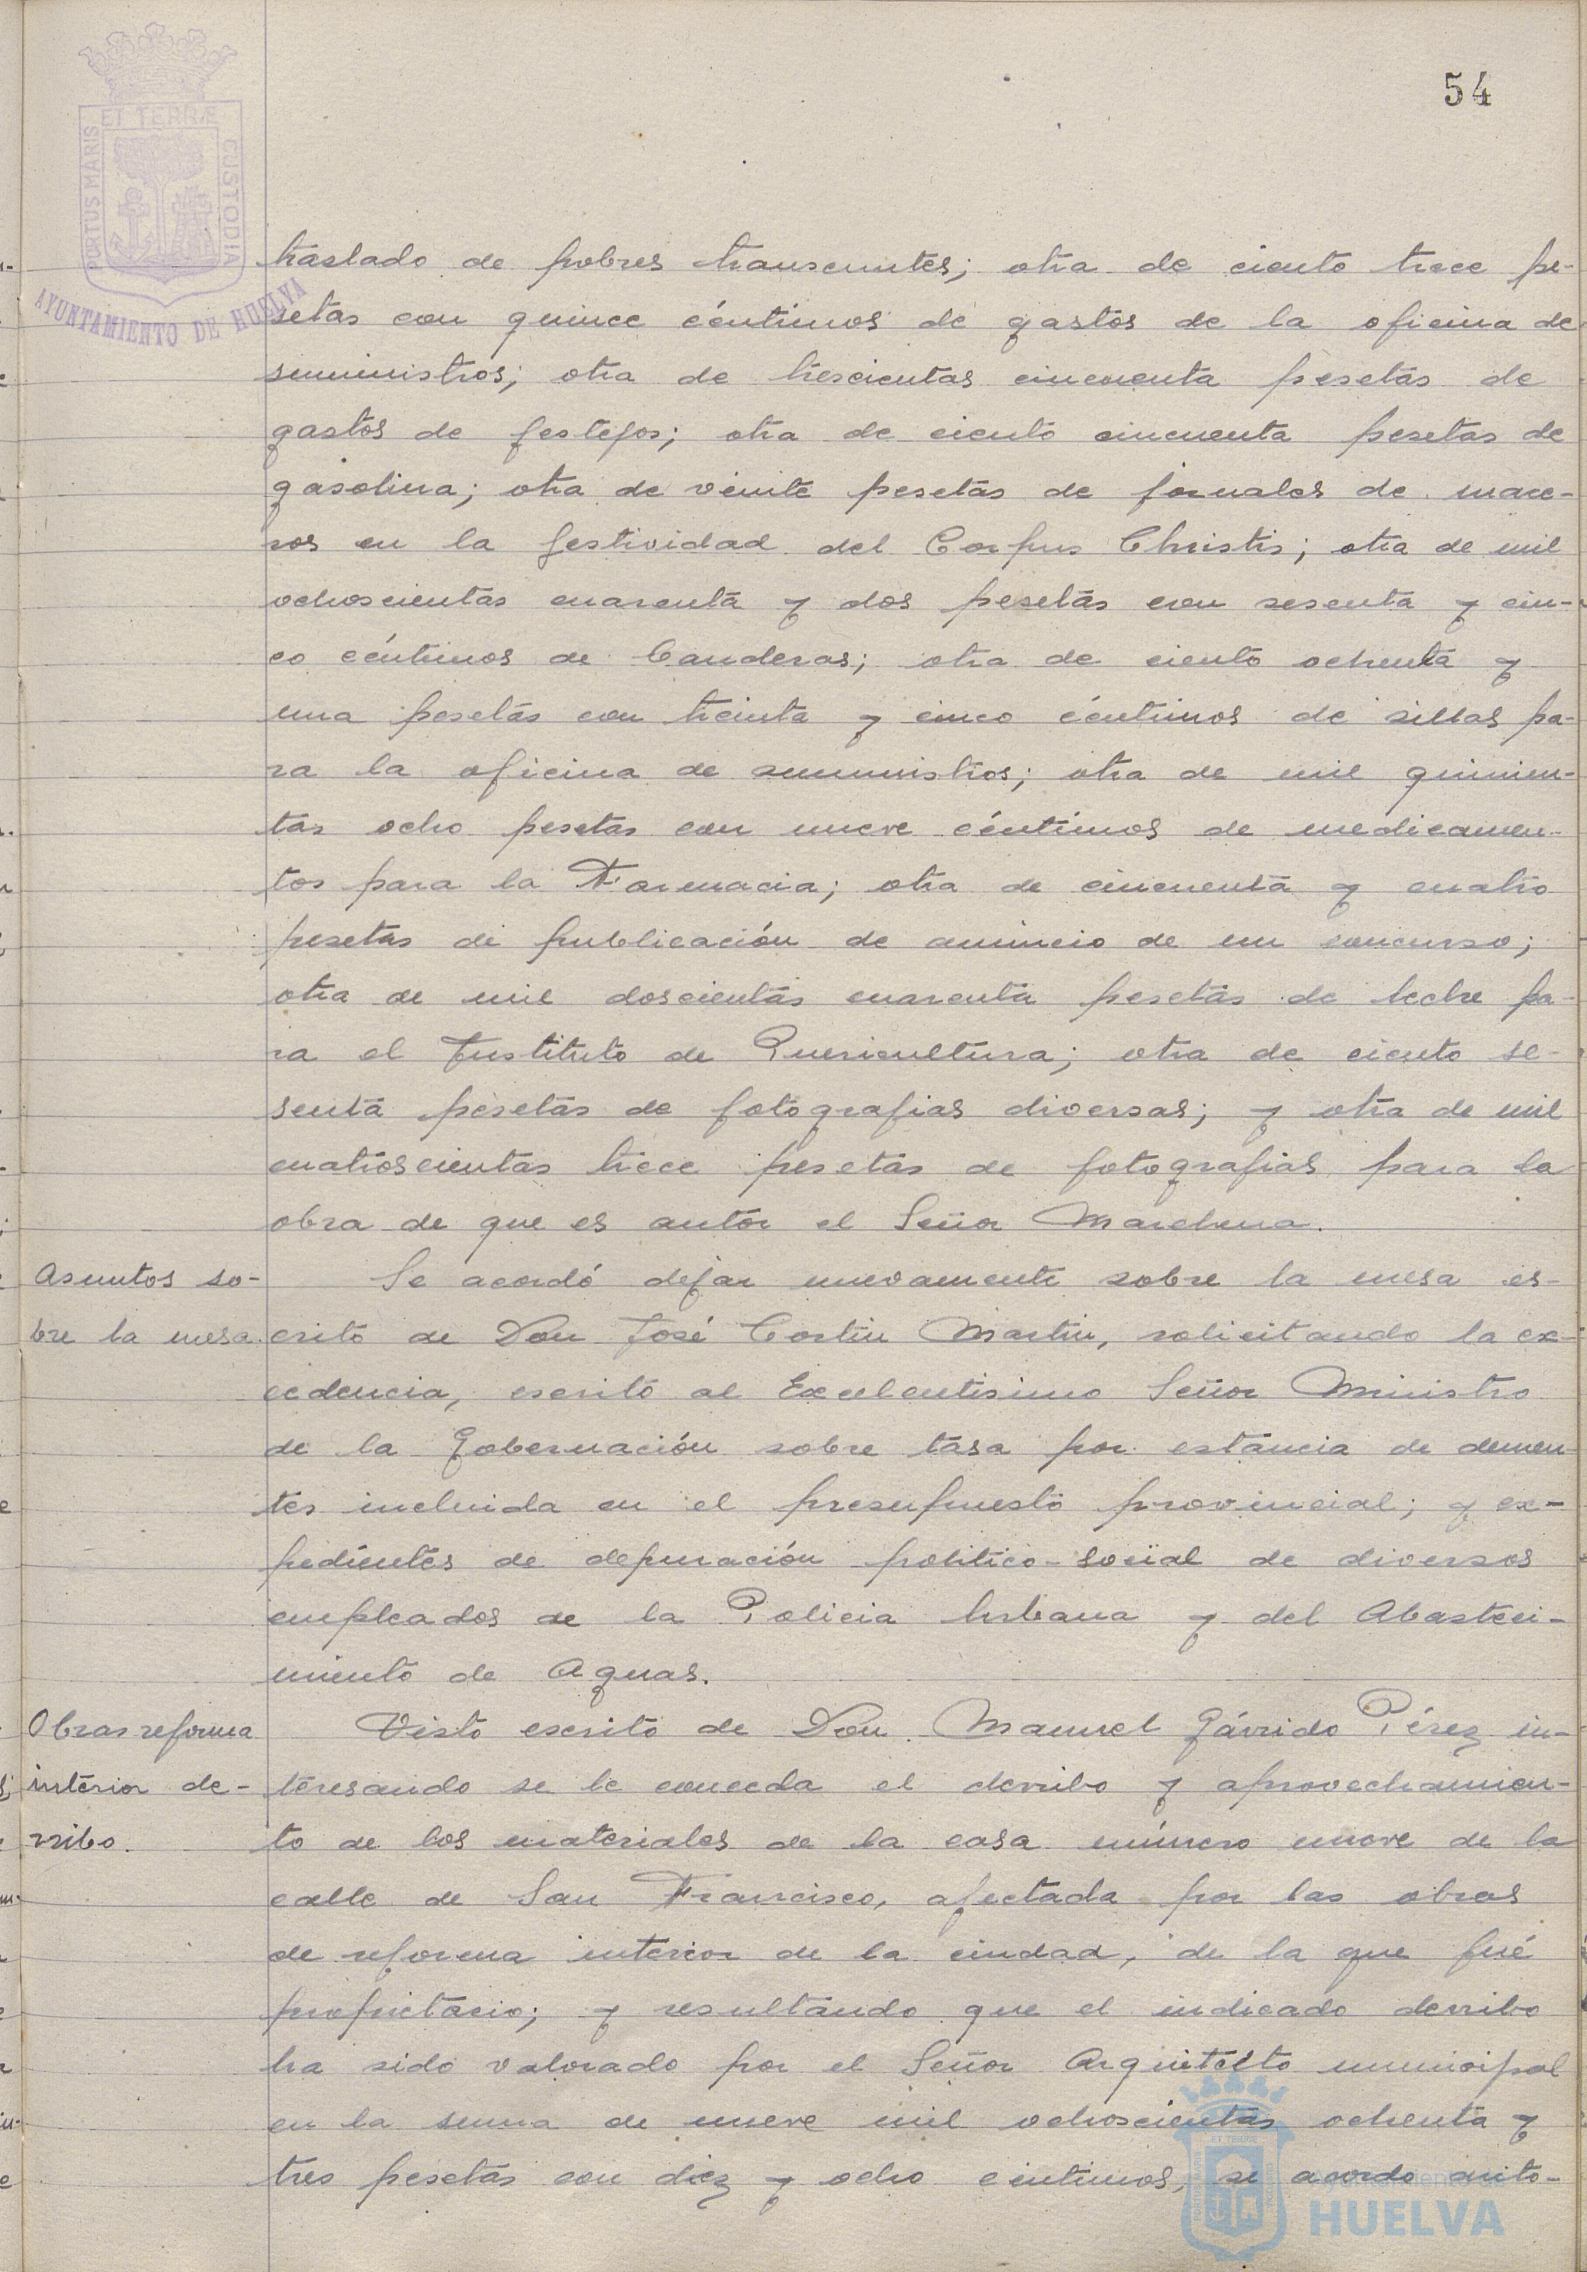 54
PORTUS MARIS ET TERRÆ CUSTODIA
AYUNTAMIENTO DE HUELVA
traslado de pobres transeuntes; otra de ciento trece pe-
setas con quince céntimos de gastos de la oficina de
suministros; otra de trescientas cincuenta pesetas de
gastos de festejos; otra de ciento cincuenta pesetas de
gasolina; otra de veinte pesetas de jornales de mace-
ros en la festividad del Corpus Christis; otra de mil
ochoscientas cuarenta y dos pesetas con sesenta y cin-
co céntimos de banderas; otra de ciento ochenta y
una pesetas con treinta y cinco céntimos de sillas pa-
ra la oficina de suministros; otra de mil quinien-
tas ocho pesetas con nueve céntimos de medicamen-
tos para la Farmacia; otra de cincuenta y cuatro
pesetas de publicación de anuncio de un concurso;
otra de mil doscientas cuarenta pesetas de leche pa-
ra el Instituto de Puericultura; otra de ciento se-
senta pesetas de fotografias diversas; y otra de mil
cuatroscientas trece pesetas de fotografias para la
obra de que es autor el Señor Marchena.
Asuntos so-
bre la mesa.
Se acordó dejar nuevamente sobre la mesa es-
crito de Don José Cortín Martín, solicitando la ex-
cedencia, escrito al Excelentisimo Señor Ministro
de la Gobernación sobre tasa por estancia de demen-
tes incluida en el presupuesto provincial; y ex-
pedientes de depuración politico-social de diversos
empleados de la Policia Urbana y del Abasteci-
miento de Aguas.
Obras reforma
interior de-
rribo.
Visto escrito de Don Manuel Gárrido Pérez in-
teresando se le conceda el derribo y aprovechamien-
to de los materiales de la casa número nueve de la
calle de San Francisco, afectada por las obras
de reforma interior de la ciudad, de la que fué
propietario; y resultando que el indicado derribo
ha sido valorado por el Señor Arquitecto municipal
en la suma de nueve mil ochoscientas ochenta y
tres pesetas con diez y ocho centimos, se acordo auto-
Ayuntamiento de
HUELVA